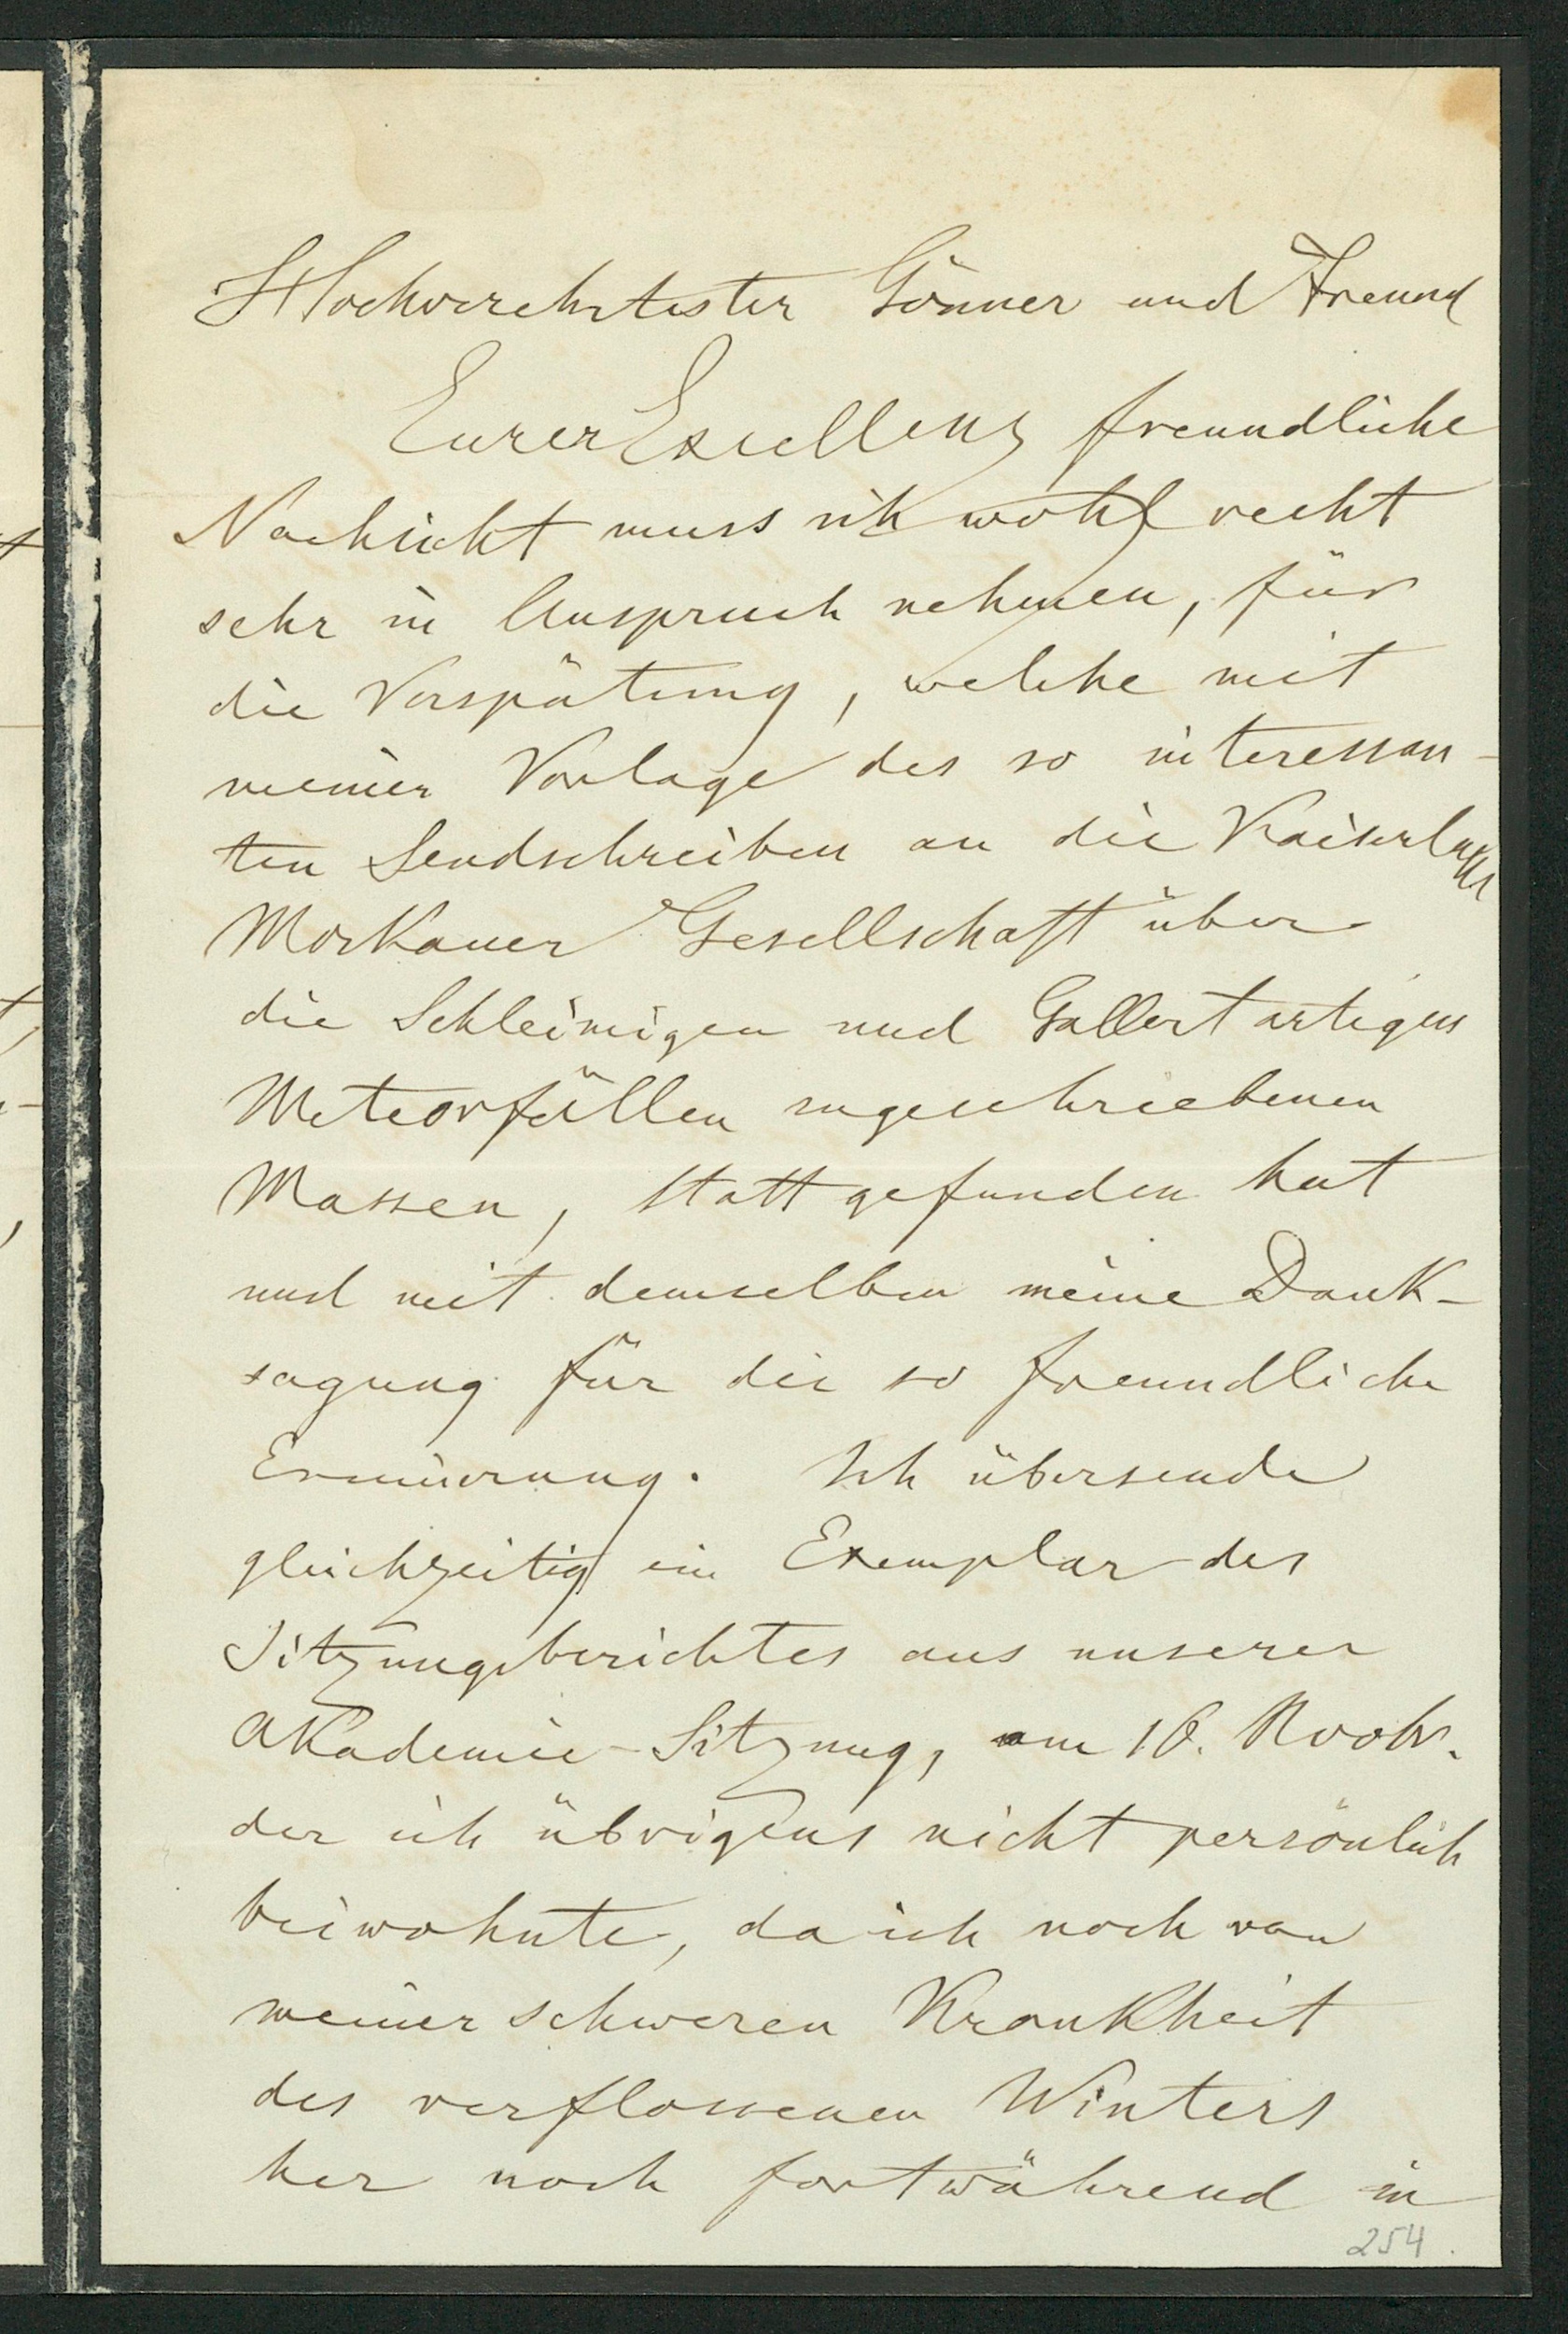 Hochverehrtester Gönner und Freund
Eurer Excellenz freundliche
Nachsicht muss ich wohl recht
sehr in Anspruch nehmen, für
die Verspätung, welche mit
meiner Vorlage des so interessan-
ten Sendschreiben an die Kaiserliche
Moskauer Gesellschaft über
die Schleimigen und Gallert artigen
Meteorfällen zugeschriebenen
Massen, statt gefunden hat
und mit demselben meine Dank-
sagung für die so freundliche
Erinnerung. Ich übersende
gleichzeitig ein Exemplar des
Sitzungsberichtes aus unserer
Akademie-Sitzung, am 10. Novbr.
der ich übrigens nicht persönlich
beiwohnte, da ich noch von
meiner schweren Krankheit
des verflossenen Winters
her noch fortwährend in
254.